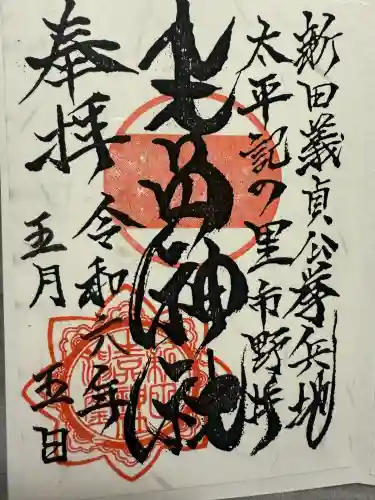 新田義貞公挙兵地
太平記の里市野井
生品神社
奉拝
令和元年
五月五日